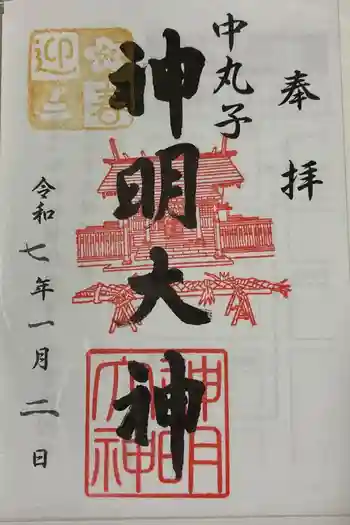 奉拝
中丸子
神明大神
令和七年一月二日
迎春
神明大神